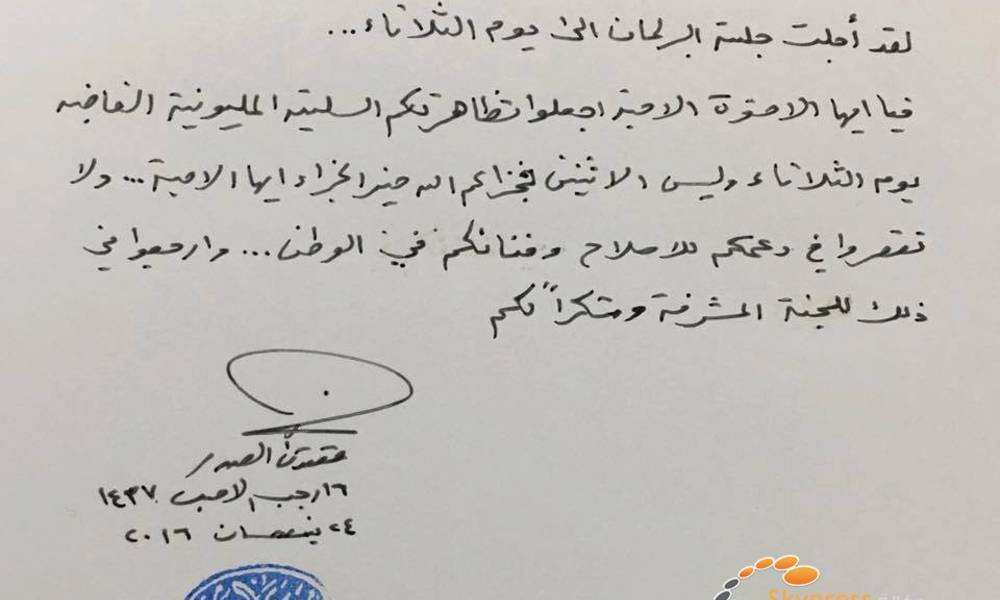 لقد أجلت جلسة البرلمان الى يوم الثلاثاء...
فيا ايها الاخوة الاحبة اجعلوا تظاهرتكم السلمية المليونية الغاضبه
يوم الثلاثاء وليس الاثنين فجزاكم الله خير الجزاء ايها الاحبة... ولا
تقصروا في دعمكم للاصلاح وفنائكم في الوطن... وارجعوا في
ذلك للجنة المشرفة وشكراً لكم
مقتدى الصدر
١٦ رجب الاصب ١٤٣٧
٢٤ نيسان ٢٠١٦
Skypress